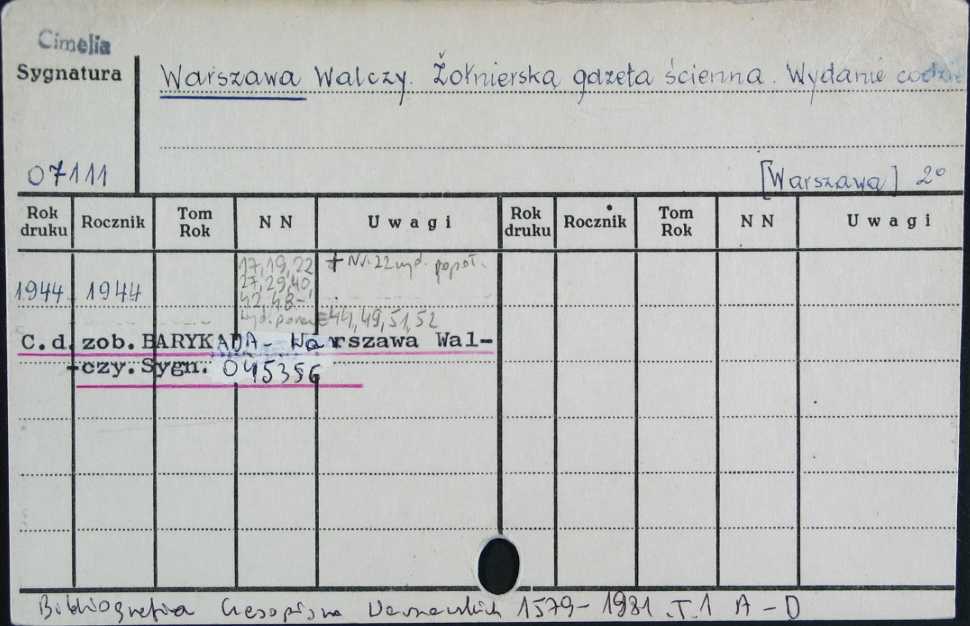 Cimelia
Sygnatura
Warszawa Walczy. Żołnierska gazeta ścienna. Wydanie codzie
07111
[Warszawa] 2°
Rok druku Rocznik Tom Rok N N Uwagi Rok druku Rocznik Tom Rok N N Uwagi
17,19,22 + Nr. 22 wyd. popoł.
1944 1944 27,29,40,
42,48-
wyd. poran 44,49,51,52
C.d. zob. BARYKADA- Warszawa Wal-
-czy. Sygn. 045356
Bibliografia Czasopism Warszawskich 1579-1981 .T.1 A-D